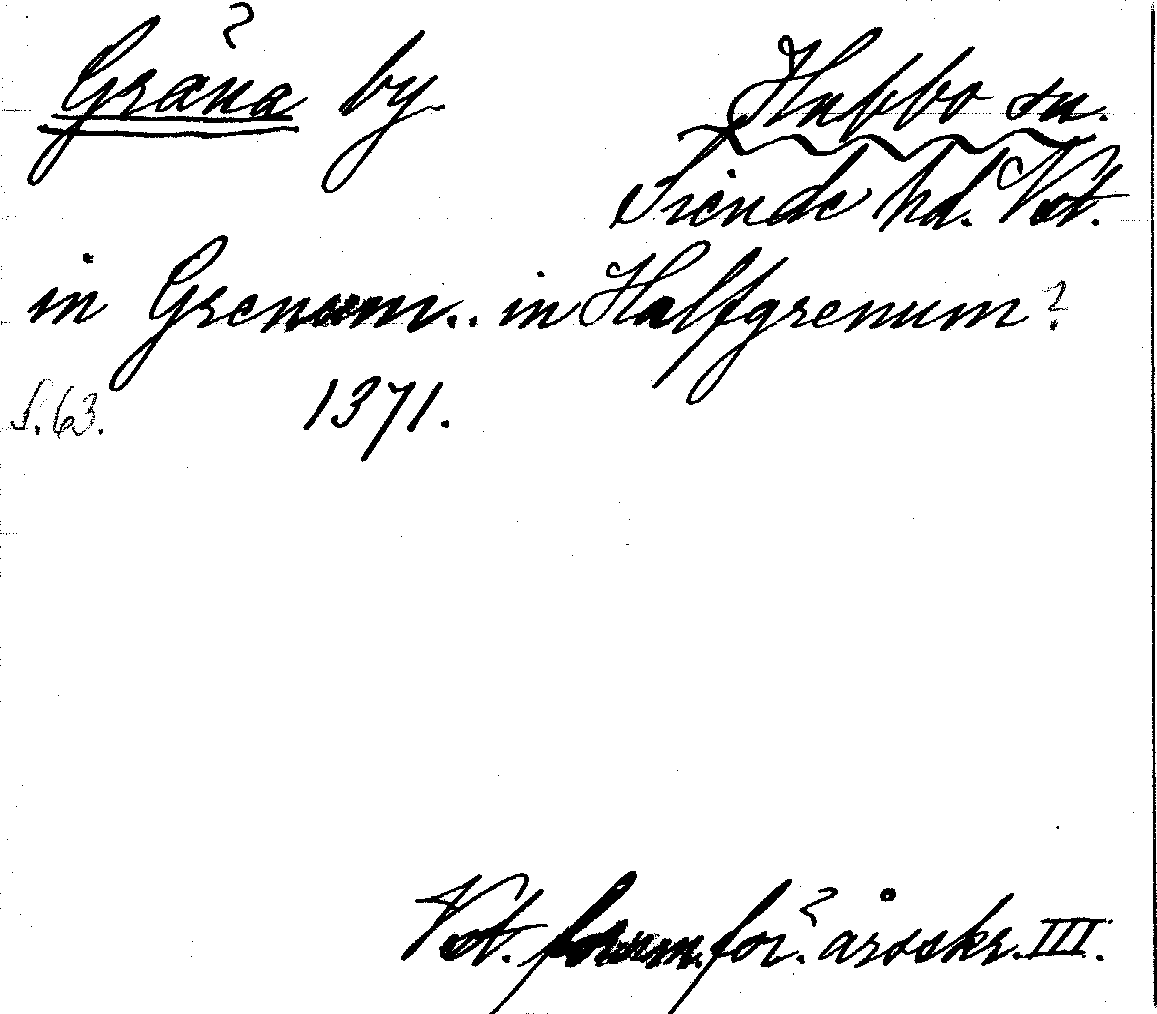 Gräna by
Hubbo sn.
Siende hd. Vstl.
in Grenum.. in Halfgrenum?
S. 63. 1371.
Vstl. fornm.för. årsskr. III.